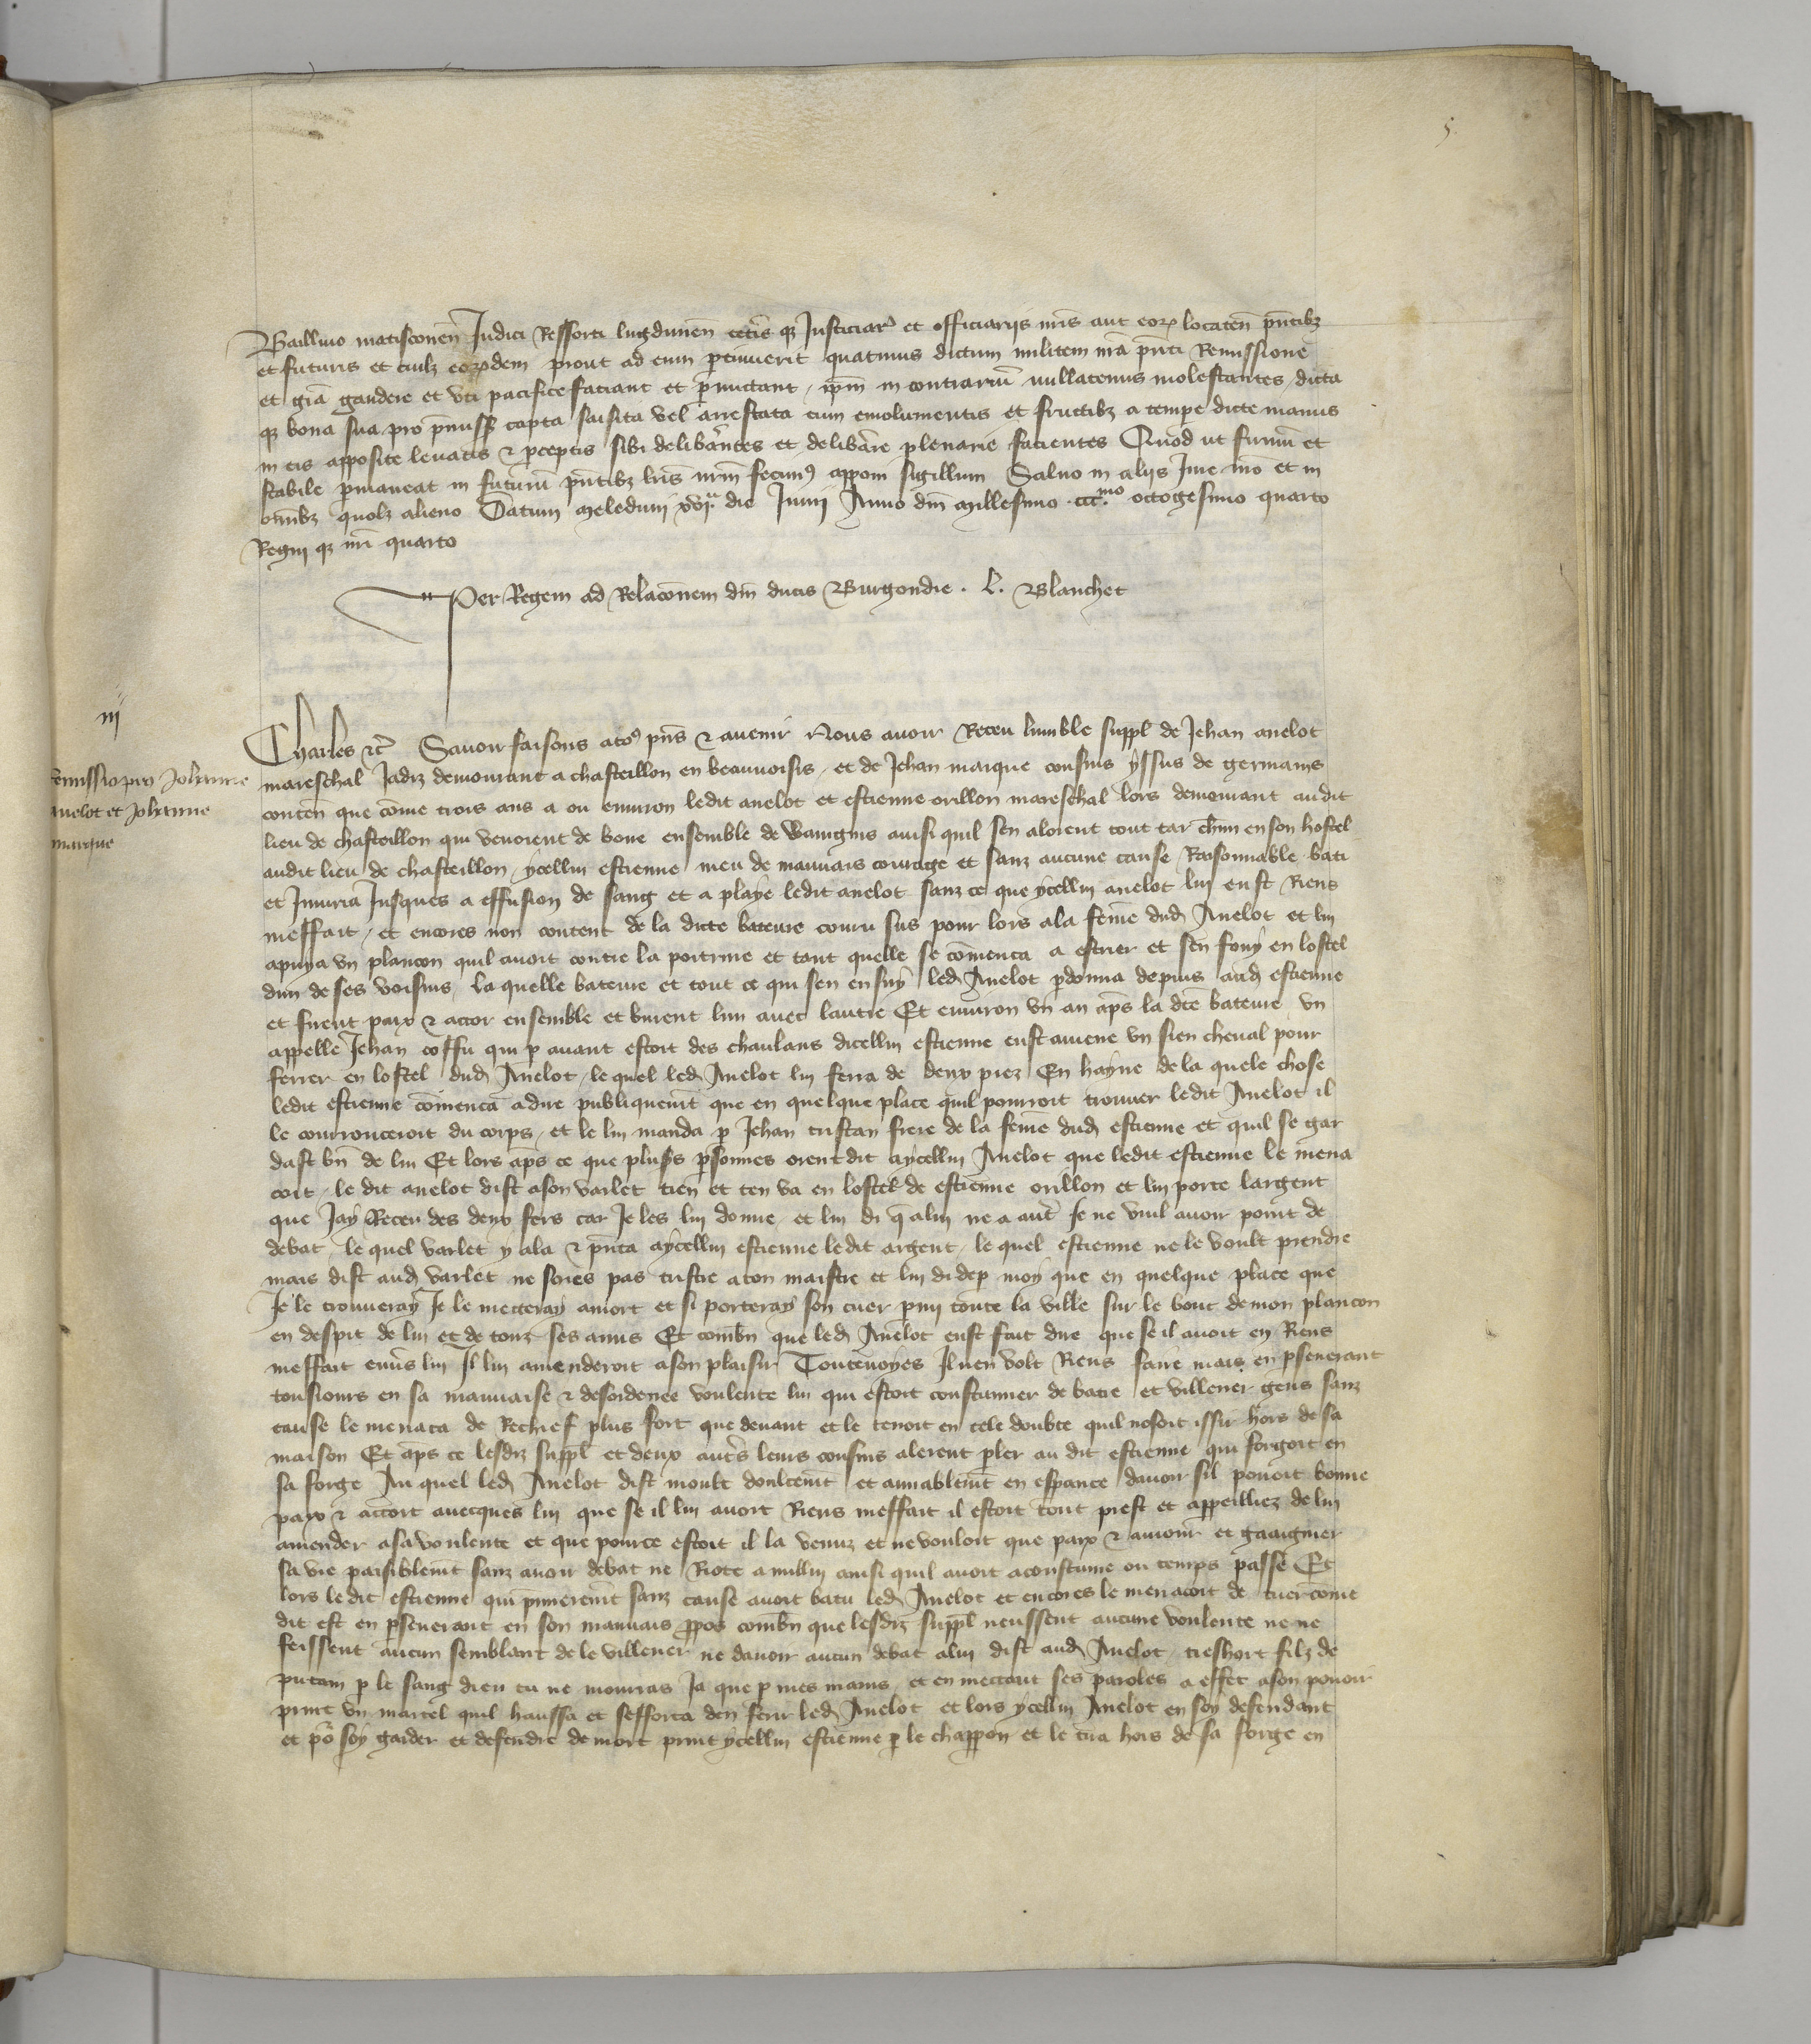 5.
Baillivo matisconen Judici Ressorti lugdunen ceteris qz Justiciar et officiariis nris aut eorz locaten pntibz
et futuris et cuilz eorzdem prout ad eum ptinuerit quatinus dictum militem nra pnti Remissione
et gra gaudere et uti pacifice faciant et pmittant / ipm in contrariu nullatenus molestantes / dicta
qz bona sua pro pmiss capta saisita vel arrestata cum emolumentis et fructibz a tempe dicte manus
in eis apposite levatis & pceptis sibi delibantes et delibare plenarie facientes Quod ut firmu et
stabile pmaneat in futuru pntibz lris nrm fecimꝰ apponi sigillum Salvo in aliis Jure nro et in
omibz quolz alieno Datum meleduni xvija die Junii Anno dni millesimo ccc.mo octogesimo quarto
Regni qz nri quarto
Per Regem ad Relaconem dni ducis Burgondie . L. Blanchet
iij
emissio pro Johanne
anelot et Johanne
marque
Charles &c Savoir faisons a toꝰ pns & avenir Nous avoir Receu lumble suppl de Jehan anelot
mareschal Jadiz demourant a chasteillon en beauvoisis / et de Jehan marque cousins yssus de germains
conten que come trois ans a ou environ ledit anelot et estienne orillon mareschal lors demourant audit
lieu de chasteillon qui venoient de boire ensemble de ainsi quil sen aloient tout tar chun en son hostel
audit lieu de chasteillon / ycellui estienne meu de mauvais courage et sanz aucune cause Raisonnable bati
et Jniuria Jusques a effusion de sang et a playe ledit anelot sanz ce que ycellui anelot lui eust Riens
meffait / et encores non content de la dicte bateure couru sus pour lors ala feme dud Anelot et lui
apuya un plancon quil avoit contre la poitrine et tant quelle se comenca a escrier et sen fouy en lostel
dun de ses voisins / la quelle bateure et tout ce qui sen ensuy led Anelot pdonna depuis aud estienne
et firent paix & accor ensemble et burent lun avec lautre Et environ un an aps la dce bateure un
appelle Jehan coffu qui p avant estoit des chaulans dicellui estienne eust amene un sien cheval pour
ferrer en lostel dud Anelot / le quel led Anelot lui ferra de deux piez En hayne de la quele chose
ledit estienne comenca adire publiquemt que en quelque place quil pourroit trouver ledit Anelot il
le courrouceroit du corps / et le lui manda p Jehan tristan frere de la feme dud estienne et quil se gar
dast bn de lui Et lors aps ce que plusrs psonnes orent dit aycellui Anelot que ledit estienne le mena
coit / le dit anelot dist ason varlet tien et ten va en lostel de estienne orillon et lui porte largent
que Jay Receu des deux fers car Je les lui donne / et lui di q alui ne a autr Je ne vuil avoir point de
debat / le quel varlet y ala & pnta aycellui estienne ledit argent / le quel estienne ne le voult prendre
mais dist aud varlet ne soies pas tristre aton maistre et lui di dep moy que en quelque place que
Je le trouveray Je le metteray amort et si porteray son cuer pmi toute la ville sur le bout de mon plancon
en despit de lui et de touz ses amis Et combn que led Anelot eust fait dire que se il avoit en Riens
meffait envs lui Il lui amenderoit ason plaisir Toutevoyes Il nen volt Riens faire mais en pseverant
tousiours en sa mauvaise & desordenee voulente lui qui estoit coustumier de batre et villener gens sanz
cause le menaca de Rechief plus fort que devant et le tenoit en tele doubte quil nosoit issir hors de sa
maison Et aps ce lesdiz suppl et deux autrs leurs cousins alerent pler au dit estienne qui forgoit en
sa forge Au quel led Anelot dist moult doulcemt et amiablemt en espance davoir sil povoit bonne
paix & accort avecques lui que se il lui avoit Riens meffait il estoit tout prest et appeilliez de lui
amender asa voulente et que pource estoit il la venuz et ne vouloit que paix & amour et gaaignier
sa vie paisiblemt sanz avoir debat ne Riote a nullui ainsi quil avoit acoustume ou temps passe Et
lors le dit estienne qui pmieremt sanz cause avoit batu led Anelot et encores le menacoit de tuer come
dit est en pseverant en son mauvais ppos combn que lesdiz suppl neussent aucune voulente ne ne
feissent aucun semblant de le villener ne davoir aucun debat alui dist aud Anelot / treshort filz de
putain p le sang dieu tu ne mourras Ja que p mes mains / et en mettant ses paroles a effet ason povoir
print un martel quil haussa et sefforca den ferir led Anelot et lors ycellui Anelot en soy defendant
et po soy garder et defendre de mort print ycellui estienne p le chappon et le tira hors de sa forge en